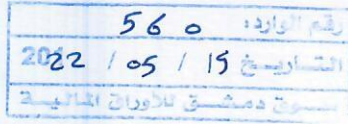 رقم الوارد: 560
التاريخ 15 / 05 / 2022
سوق دمشق للأوراق المالية